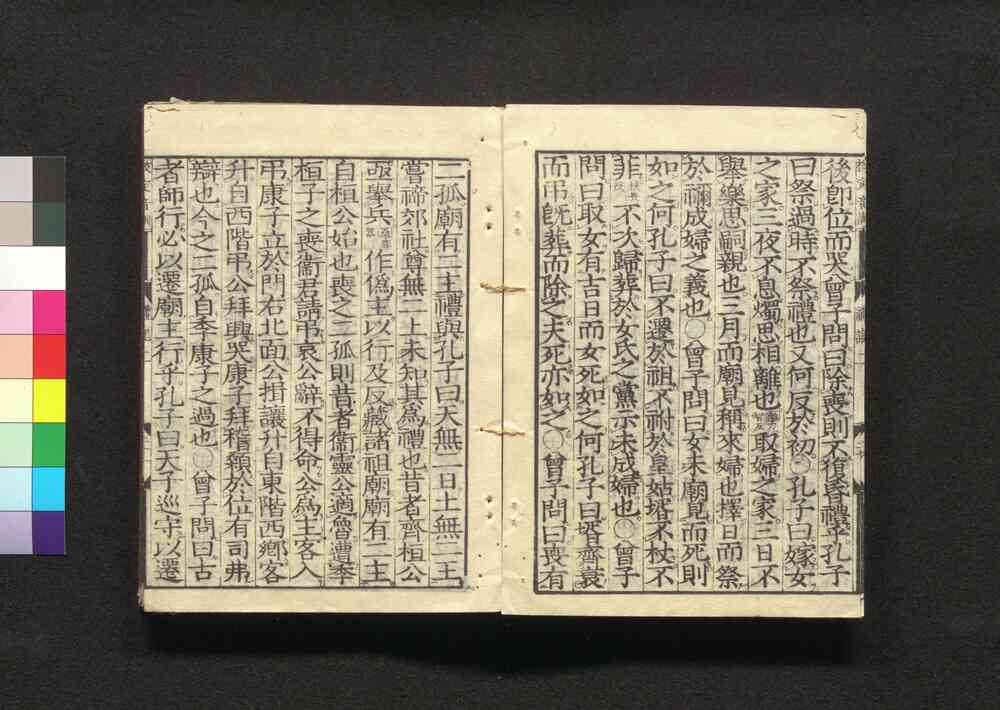 後卽位而哭曾子問曰除喪則不復昏禮乎孔子
曰祭過時不祭禮也又何反於初○孔子曰嫁女
之家三夜不息燭思相離也取婦之家三日不
舉樂思嗣親也三月而廟見稱來婦也擇日而祭
於禰成婦之義也○曾子問曰女未廟見而死則
如之何孔子曰不遷於祖不祔於皇姑壻不杖不
菲不次歸葬於女氏之黨示未成婦也○曾子
問曰取女有吉日而女死如之何孔子曰壻齊衰
而弔旣葬而除之夫死亦如之○曾子問曰喪有
二孤廟有二主禮與孔子曰天無二日土無二王
嘗禘郊社尊無二上未知其爲禮也昔者齊桓公
亟舉兵作僞主以行及反藏諸祖廟廟有二主
自桓公始也喪之二孤則昔者衞靈公適魯遭季
桓子之喪衞君請弔哀公辭不得命公爲主客入
弔康子立於門右北面公揖讓升自東階西鄕客
升自西階弔公拜興哭康子拜稽顙於位有司弗
辯也今之二孤自季康子之過也○曾子問曰古
者師行必以遷廟主行乎孔子曰天子巡守以遷